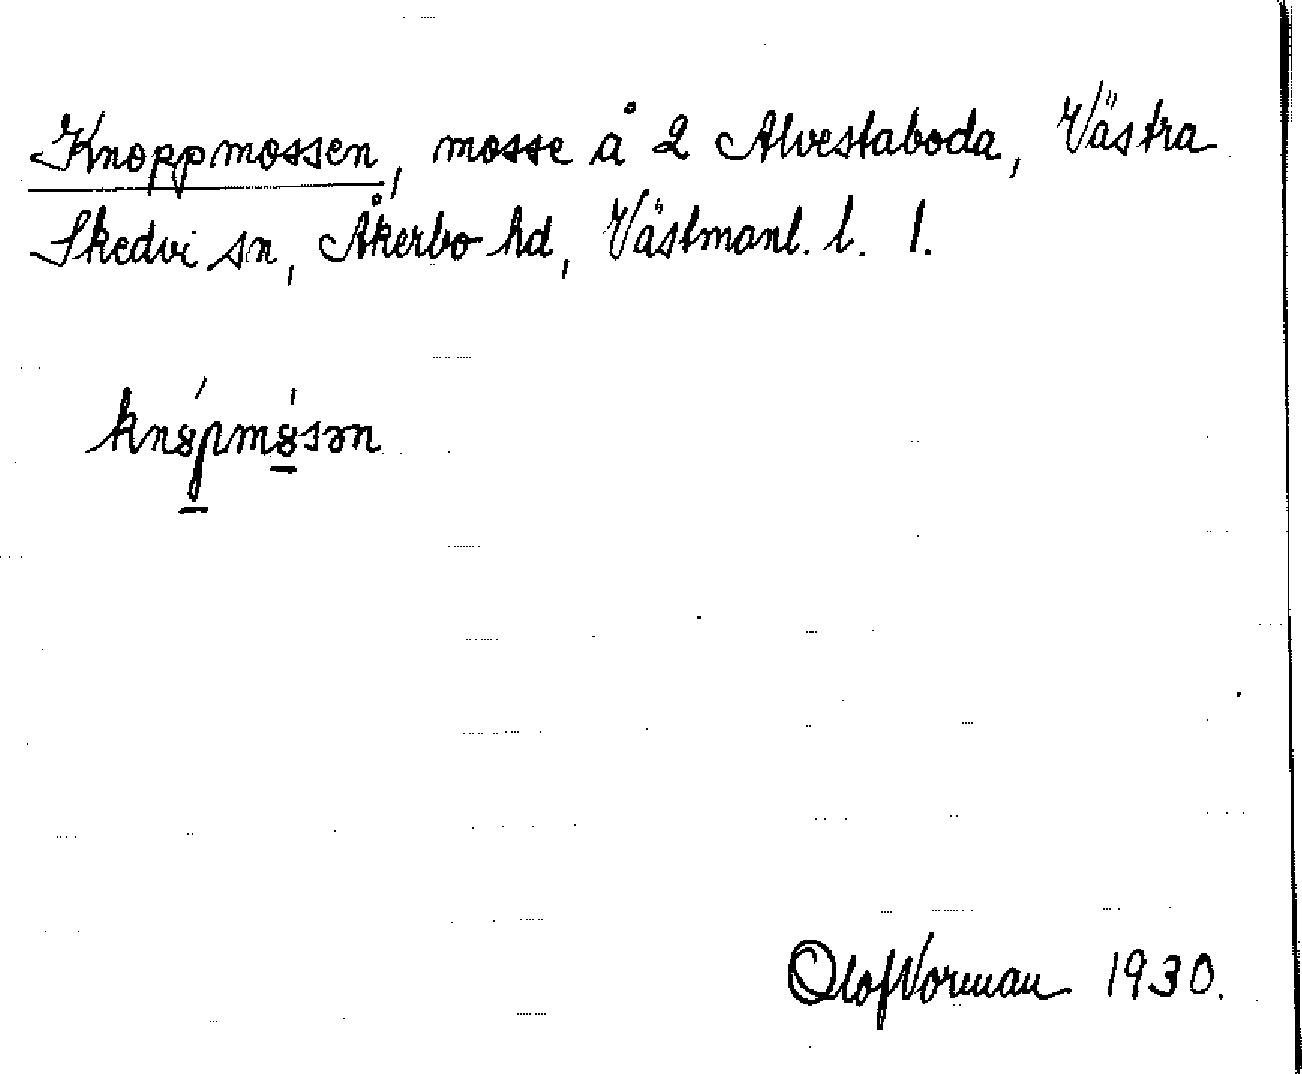 Knoppmossen, mosse å 2 Alvestaboda, Västra
Skedvi sn, Åkerbo hd, Västmanl. l. 1.
knȣ́pmȣ́sən
Olof Norman 1930.